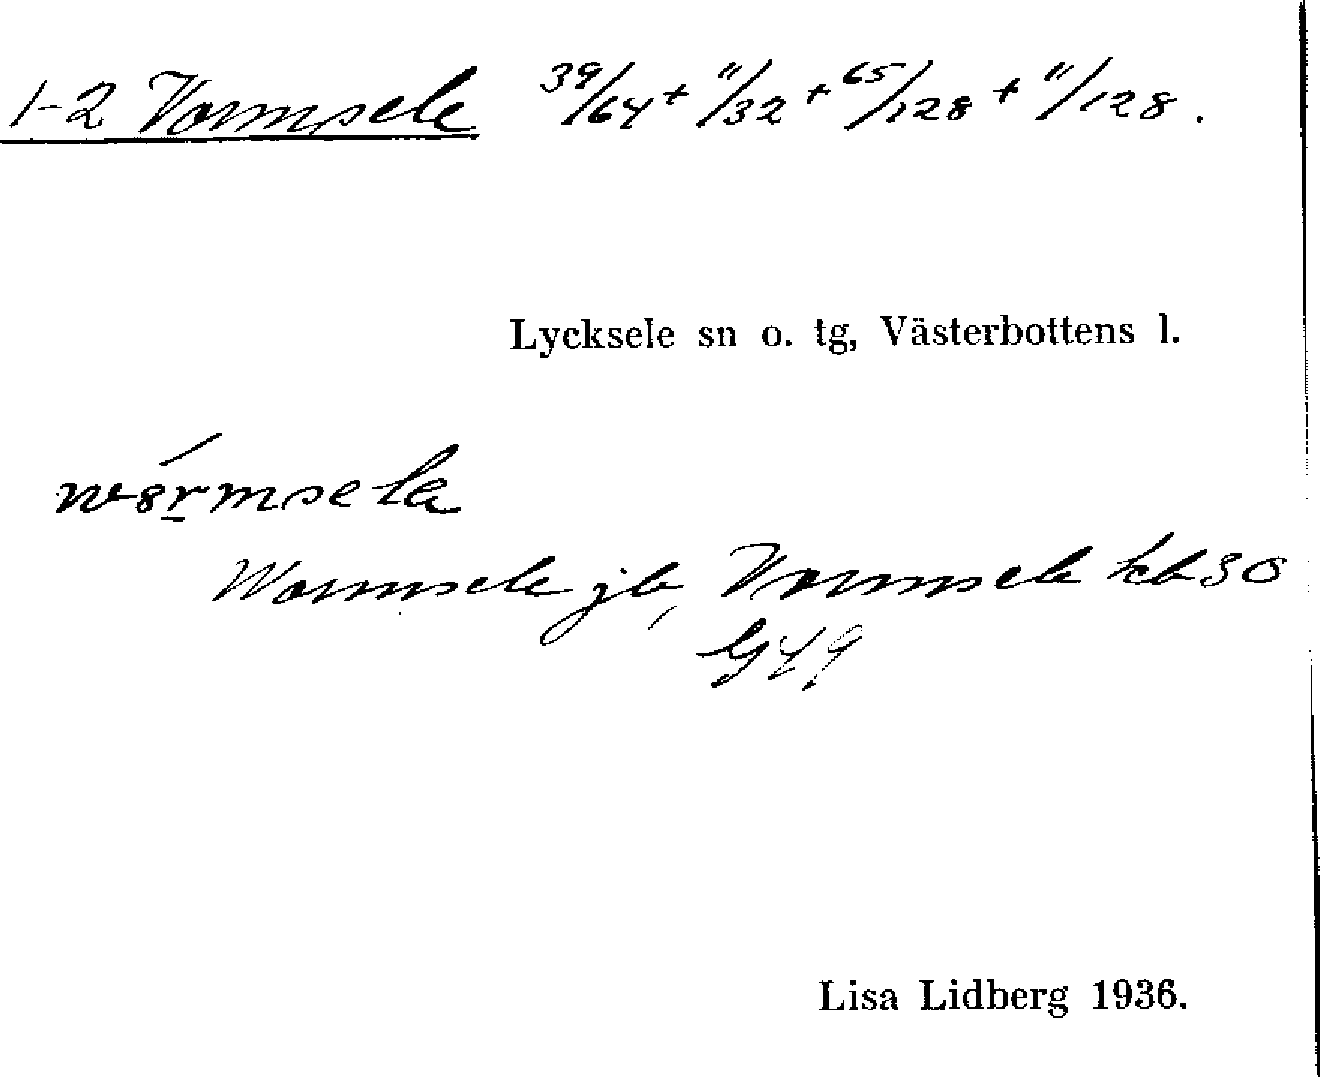 1-2 Vormsele 39/64 + 11/32 + 65/128 + 11/128.
Lycksele sn o. tg, Västerbottens l.
Wormsele jb, Vormsele kb 30
G 49
Lisa Lidberg 1936.